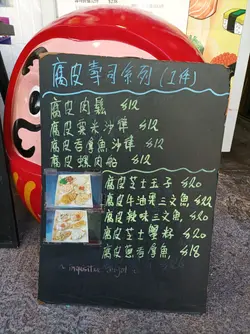 腐皮壽司系列(1件)
腐皮肉鬆 $12
腐皮粟米沙律 $12
腐皮吞拿魚沙律 $12
腐皮蟹肉船 $12
腐皮芝士玉子 $20
腐皮牛油果三文魚 $20
腐皮辣味三文魚 $20
腐皮芝士蟹籽 $20
腐皮 吞拿魚 $18